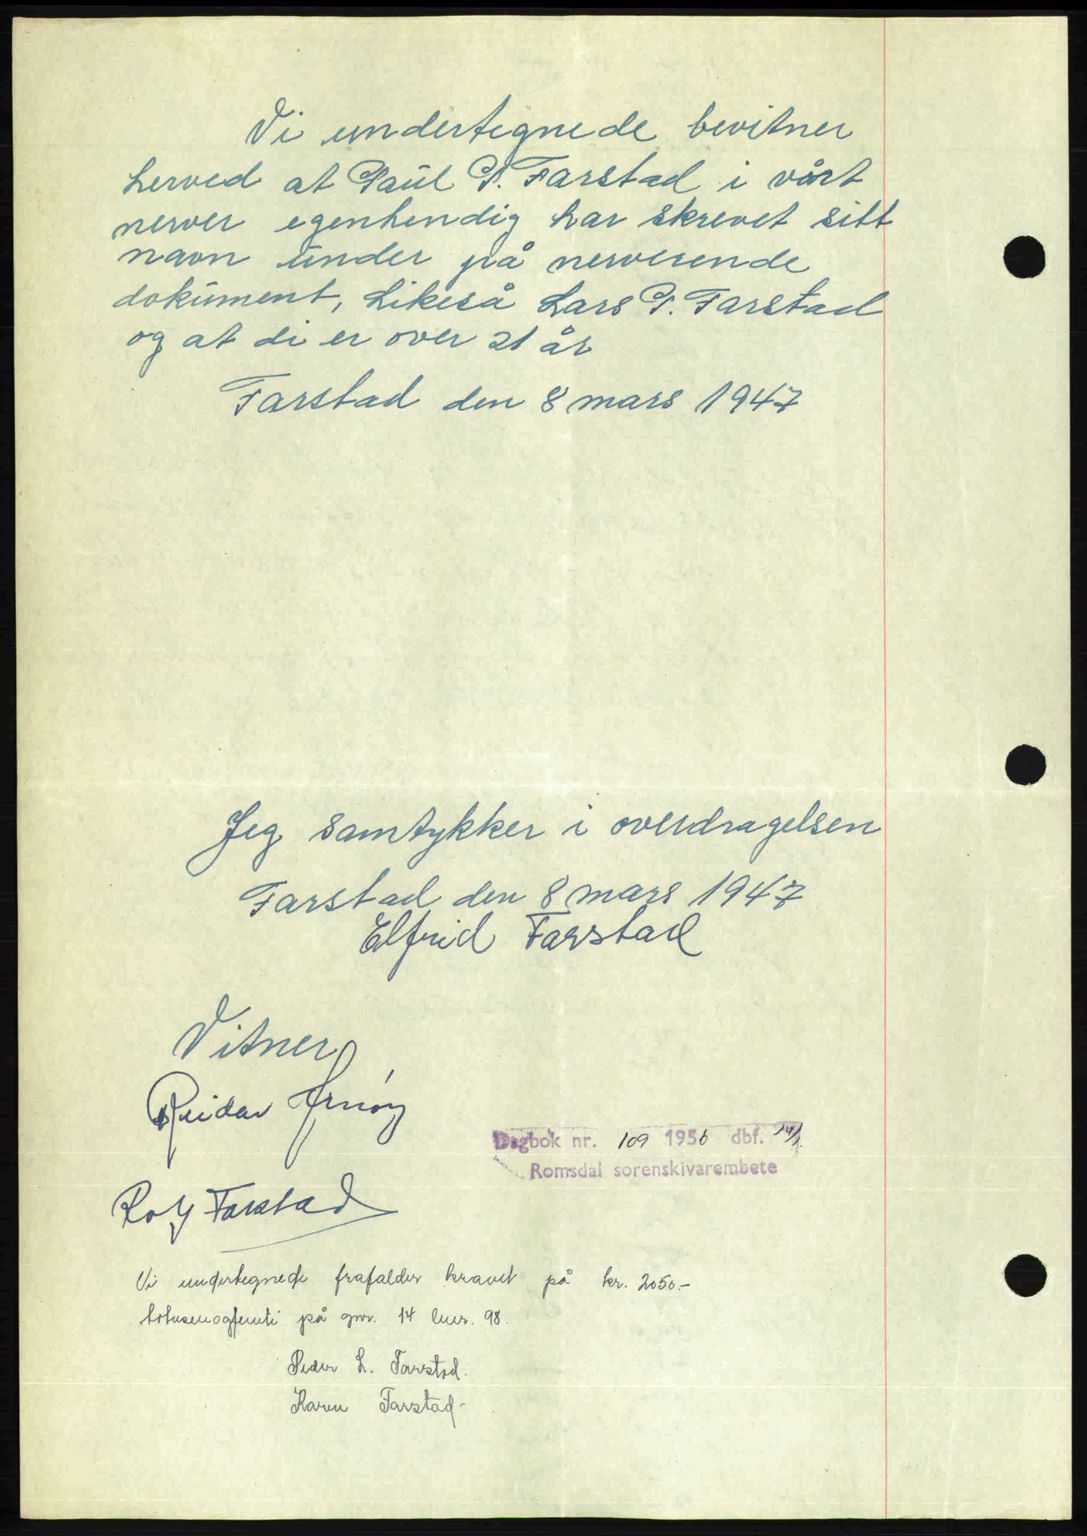 Vi undertegnede bevitner
herved at Paul P. Farstad i vårt
nerver egenhendig har skrevet sitt
navn under på nerverende
dokument, Likeså Lars P. Farstad
og at di er over 21 år
Farstad den 8 mars 1947
Jeg samtykker i overdragelsen
Farstad den 8 mars 1947
Elfrid Farstad
Vitner
Reidar
Dagbok nr. 109 1956 dbf. 14/1.
Romsdal sorenskrivarembete
Rolf Farstad
Vi undertegnede frafalder kravet på kr. 2050.-
totusenogfemti på gnr. 14 bnr. 98.
Peder L. Farstad.
Karen Farstad